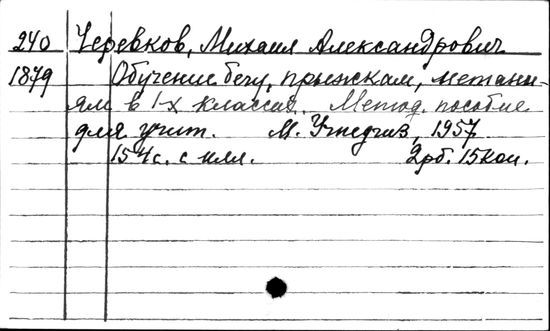 240 Черевков, Михаил Александрович
1879 Обучение бегу, прыжкам, метани-
ям в 1-х классах. Метод. пособие
для учит. М. Учпедгиз, 1957
154 с. с илл. 2рб. 15коп.